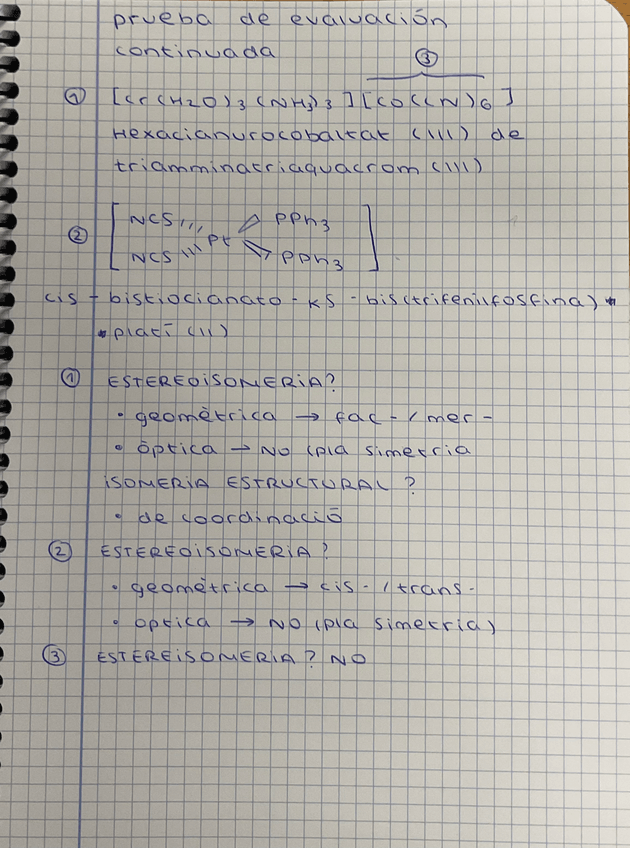 prueba de evaluación
continuada
③
① [Cr(H2O)3(NH3)3][Co(CN)6]
Hexacianurocobaltat (III) de
triamminatriaquacrom (III)
② NCS Pt PPh3
NCS PPh3
cis - bistiocianato - κS - bis(trifenilfosfina)
platí (II)
① ESTEREOISOMERIA?
• geomètrica → fac- / mer-
• òptica → NO (pla simetria
ISOMERIA ESTRUCTURAL?
• de coordinació
② ESTEREOISOMERIA?
• geomètrica → cis- / trans-
• optica → NO (pla simetria)
③ ESTEREISOMERIA? NO